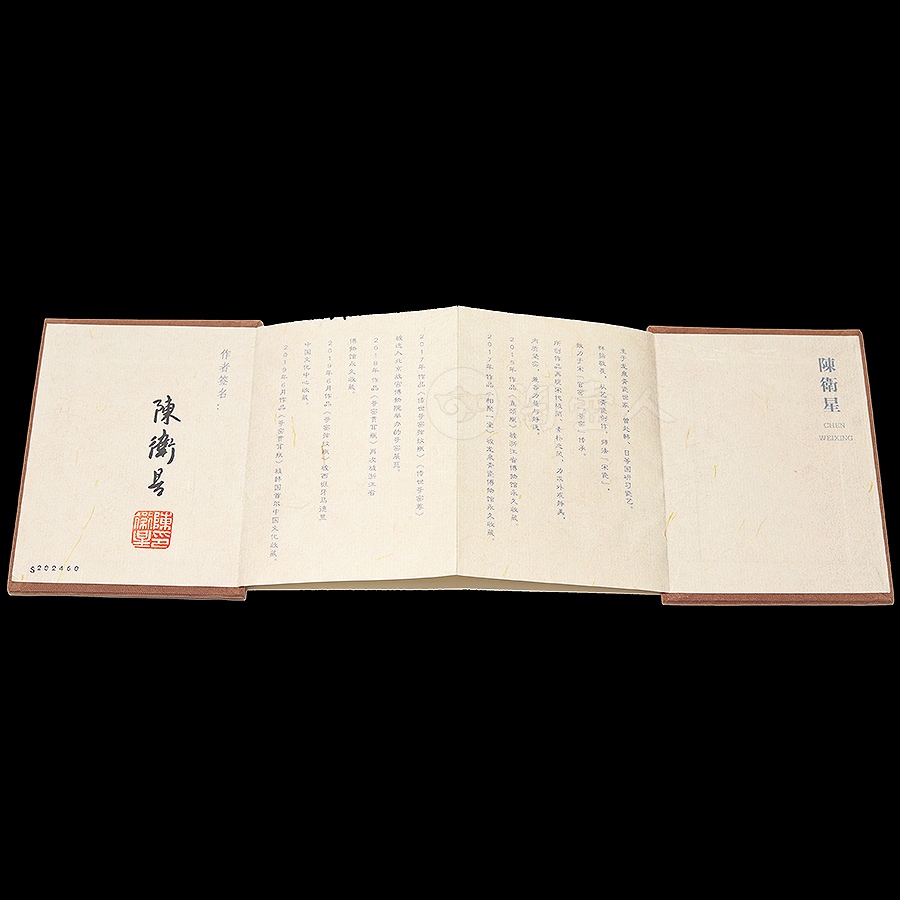 陳衛星
CHEN
WEIXING
生于龙泉青瓷世家，曾赴韩、日等国研习瓷艺。
致力于宋「官窑」「哥窑」传承。
内质坚实，兼容力量与静谧。
2015年 作品《直颈瓶》被浙江省博物馆永久收藏。
2017年 作品《相聚一堂》被龙泉青瓷博物馆永久收藏。
2017年 作品《传世哥窑弦纹瓶》《传世哥窑尊》
被选入北京故宫博物院举办的哥窑展览。
2018年 作品《哥窑贯耳瓶》再次被浙江省
博物馆永久收藏。
2019年6月作品《哥窑弦纹瓶》被西班牙马德里
中国文化中心收藏。
2019年6月作品《哥窑贯耳瓶》被韩国首尔中国文化收藏。
作者签名：
陳衛星
陳印
衛星
S202460